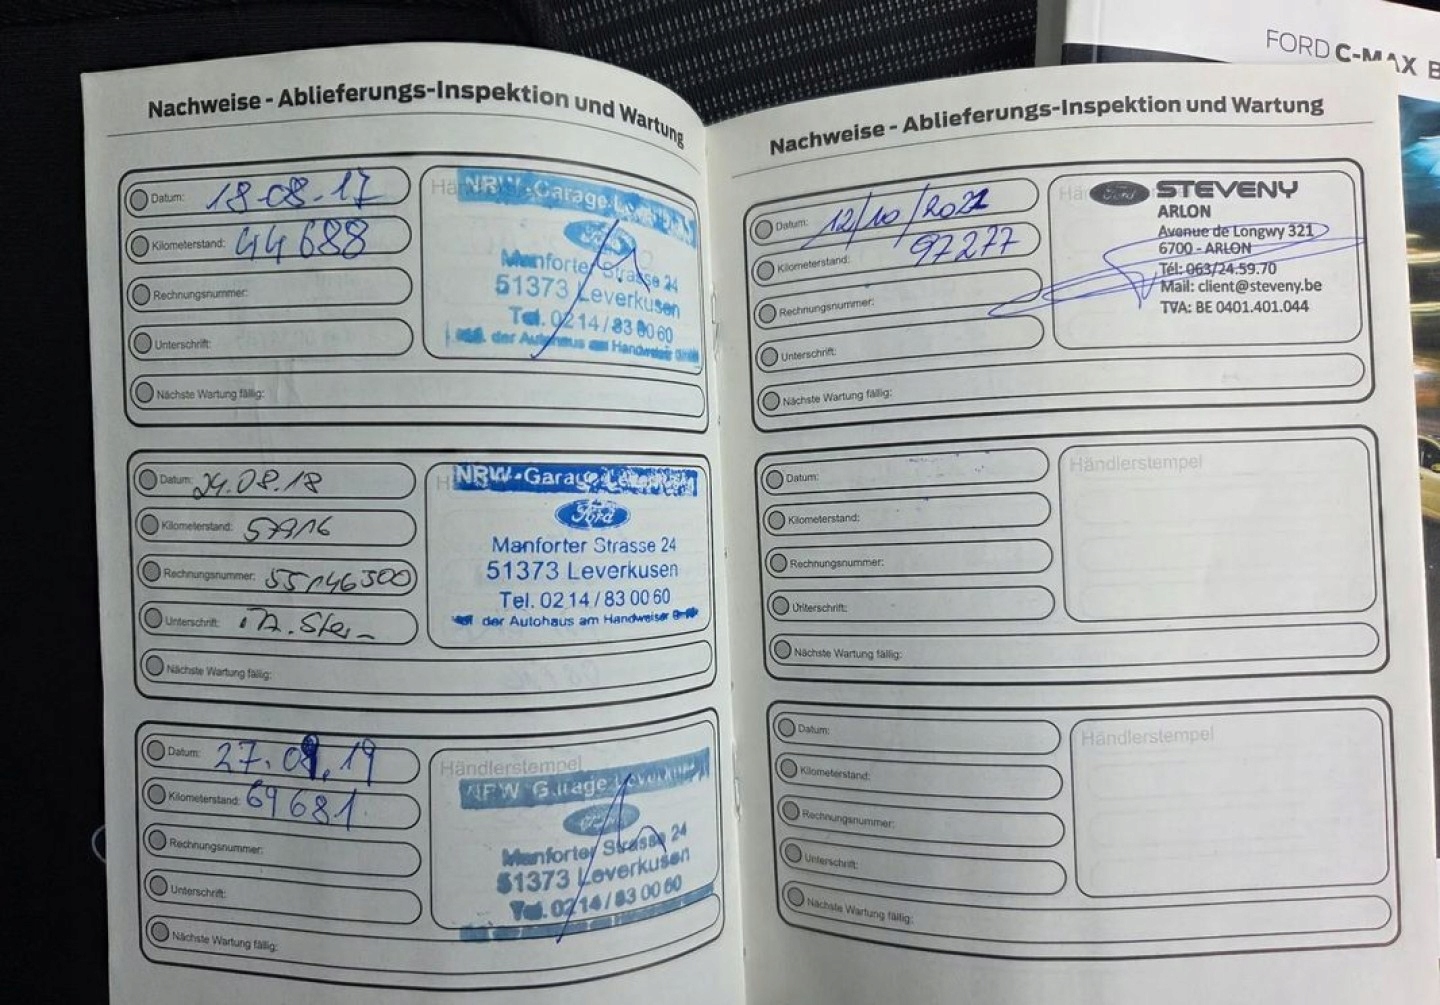 FORD C-MAX B
Nachweise - Ablieferungs-Inspektion und Wartung
Datum: 18.08.17
Kilometerstand: 44688
Rechnungsnummer:
Unterschrift:
Nächste Wartung fällig:
NRW-Garage
Ford
Manforter Strasse 24
51373 Leverkusen
Tel. 0214/83 00 60
der Autohaus am Handweiser
Datum: 29.08.18
Kilometerstand: 57916
Rechnungsnummer: 55146300
Unterschrift:
Nächste Wartung fällig:
NRW-Garage
Ford
Manforter Strasse 24
51373 Leverkusen
Tel. 0214/83 00 60
der Autohaus am Handweiser
Datum: 27.08.19
Kilometerstand: 69681
Rechnungsnummer:
Unterschrift:
Nächste Wartung fällig:
Händlerstempel
NRW Garage Leverkusen
Ford
Manforter Strasse 24
51373 Leverkusen
Tel. 0214/83 00 60
Nachweise - Ablieferungs-Inspektion und Wartung
Datum: 12/10/2021
Kilometerstand: 97277
Rechnungsnummer:
Unterschrift:
Nächste Wartung fällig:
Ford STEVENY
ARLON
Avenue de Longwy 321
6700 - ARLON
Tél: 063/24.59.70
Mail: client@steveny.be
TVA: BE 0401.401.044
Datum:
Kilometerstand:
Rechnungsnummer:
Unterschrift:
Nächste Wartung fällig:
Händlerstempel
Datum:
Kilometerstand:
Rechnungsnummer:
Unterschrift:
Nächste Wartung fällig:
Händlerstempel